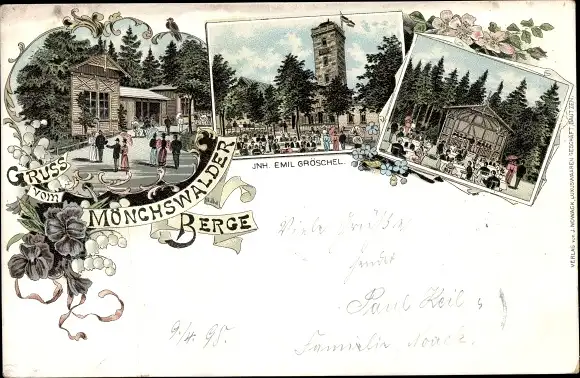 GRUSS
vom
MÖNCHSWALDER
BERGE
JNH. EMIL GRÖSCHEL.
VERLAG von J. NOWACK, LUXUSWAAREN GESCHÄFT, BAUTZEN
Viele Grüße
sendet
Paul Keil
Familie Noack.
9/4. 95.